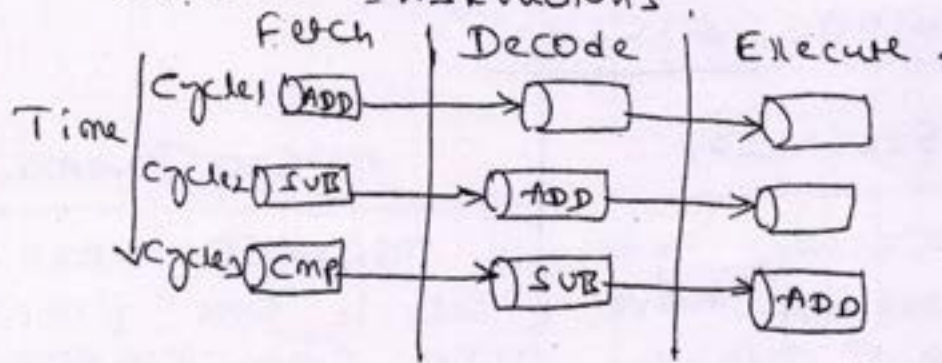 Instructions.
Fetch Decode Execute.
Time
Cycle1 ADD
Cycle2 SUB ADD
Cycle3 Cmp SUB ADD